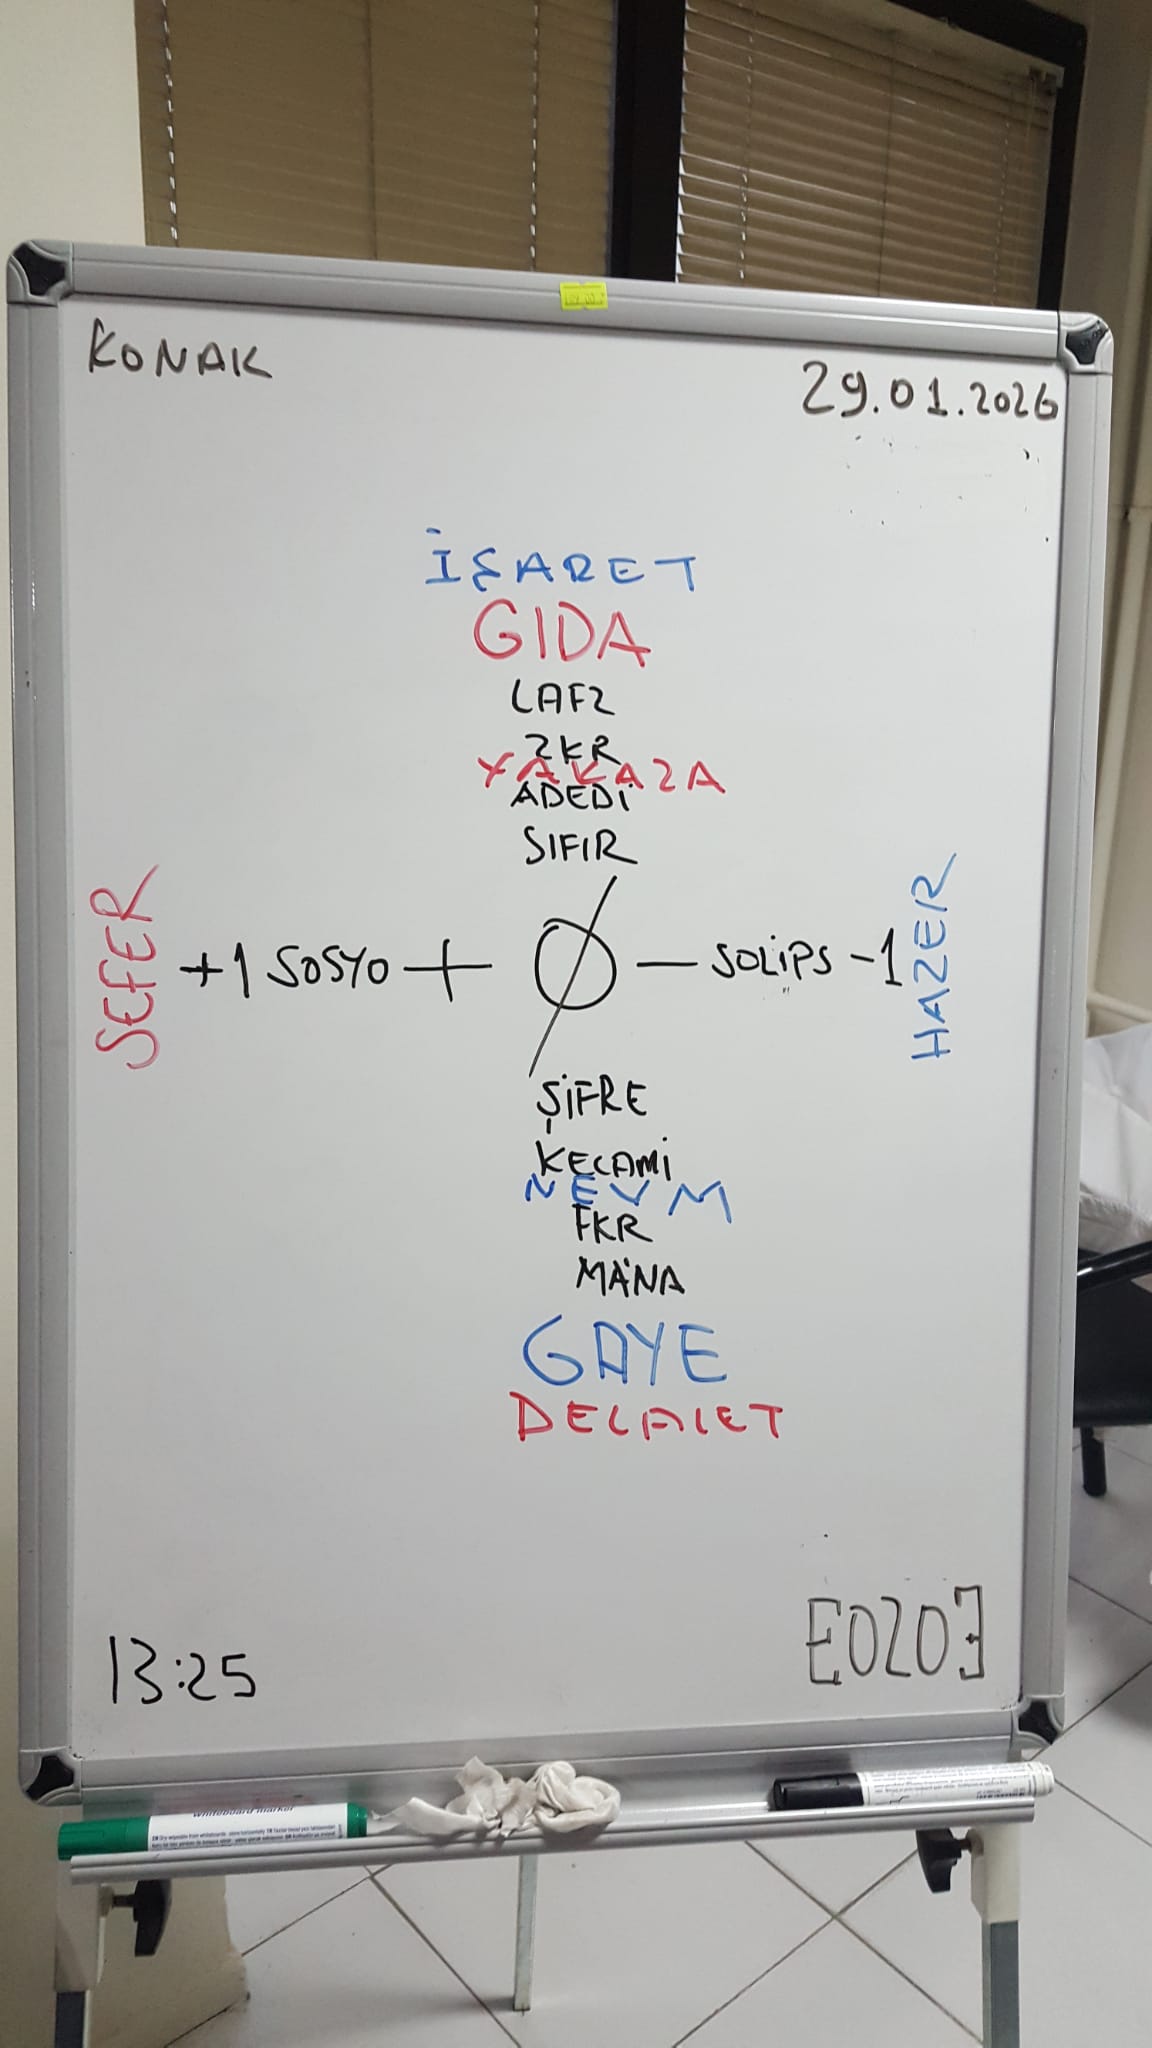 KONAK
29.01.2026
İŞARET
GIDA
LAFZ
ZKR
YAKAZA
ADEDİ
SIFIR
SEFER
+1 SOSYO + Ø — SOLİPS -1
HAZER
ŞİFRE
KELAMİ
NEVM
FKR
MÄNA
GAYE
DELALET
13:25
E0Z0Ǝ
whiteboard marker